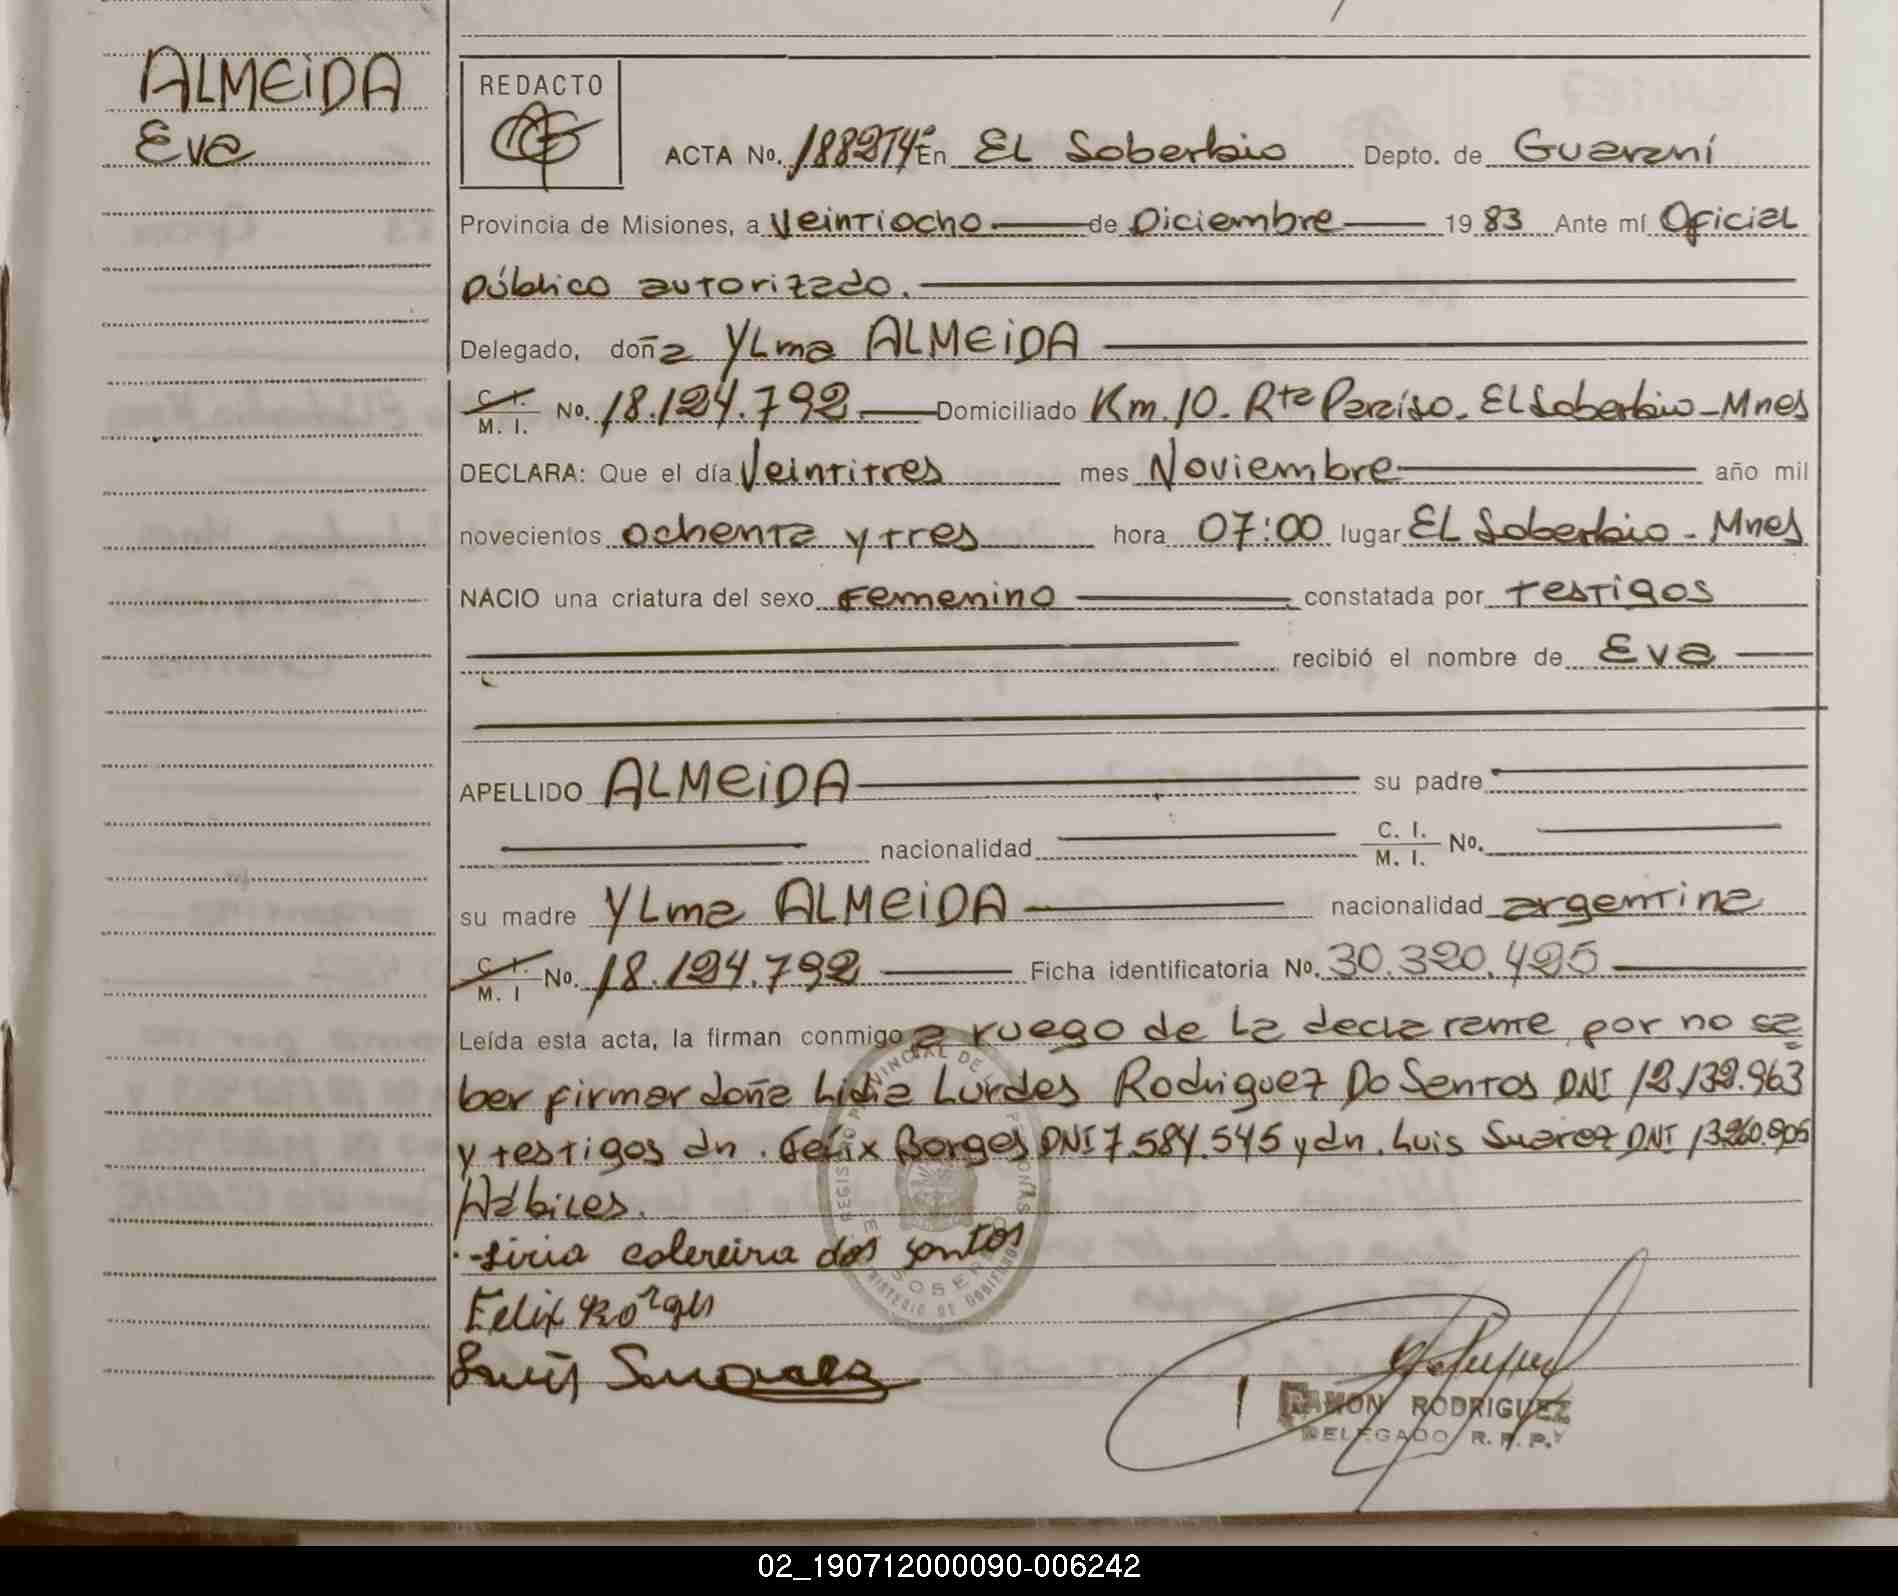 ALMEIDA
Eva
REDACTO
ACTA No. 188214º En El Soberbio Depto. de Guaraní
Provincia de Misiones, a Veintiocho de Diciembre 19 83 Ante mí Oficial
público autorizado.
Delegado, doña Ylma ALMEIDA
C. I. M. I. No. 18.124.792. Domiciliado Km. 10. Rta Paraíso. El Soberbio - Mnes
DECLARA: Que el día Veintitres mes Noviembre año mil
novecientos ochenta y tres hora 07:00 lugar El Soberbio - Mnes
NACIO una criatura del sexo Femenino constatada por testigos
recibió el nombre de Eva
APELLIDO ALMEIDA su padre
nacionalidad C. I. M. I. No.
su madre Ylma ALMEIDA nacionalidad argentina
C. I. M. I No. 18.124.792 Ficha identificatoria No. 30.320.495
Leída esta acta, la firman conmigo a ruego de la declarante por no sa
ber firmar doña Lidia Lurdes Rodriguez Do Santos DNI 12.132.963
y testigos dn. Felix Borges DNI 7.584.545 y dn. Luis Suarez DNI 13.260.905
Hábiles.
dos santos
Felix
Luis
RAMON RODRIGUEZ
DELEGADO R. P. P.
02_190712000090-006242